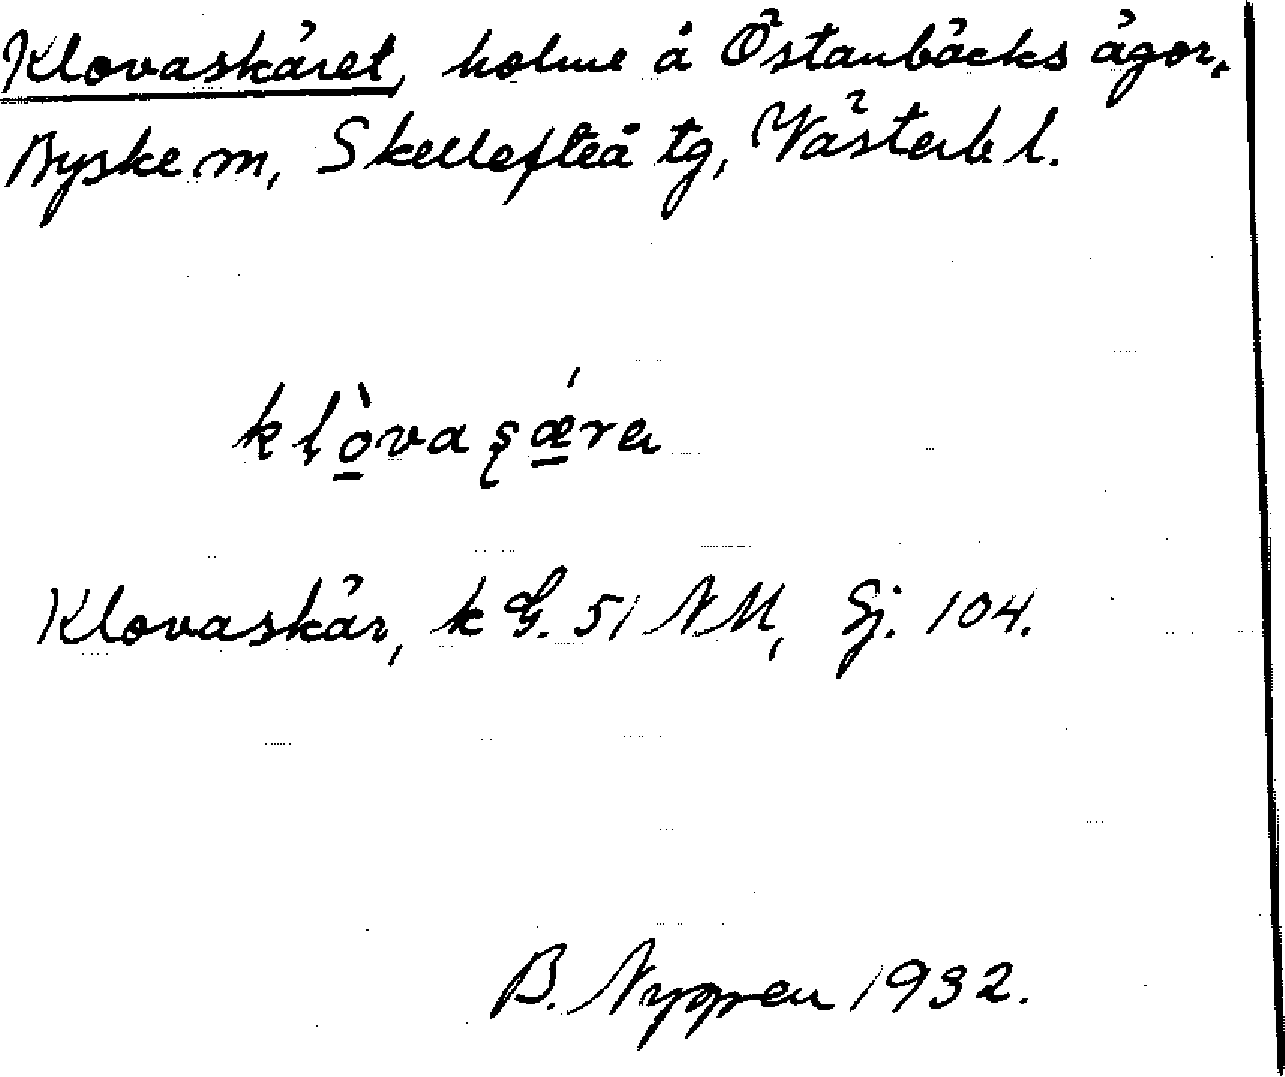 Klovaskäret, holme å Östanbäcks ägor,
Byske sn, Skellefteå tg, Västerb l.
klò̲vaʂǽ̲ra
Klovaskär, k G. 51 NM, Sj. 104.
B. Nygren 1932.